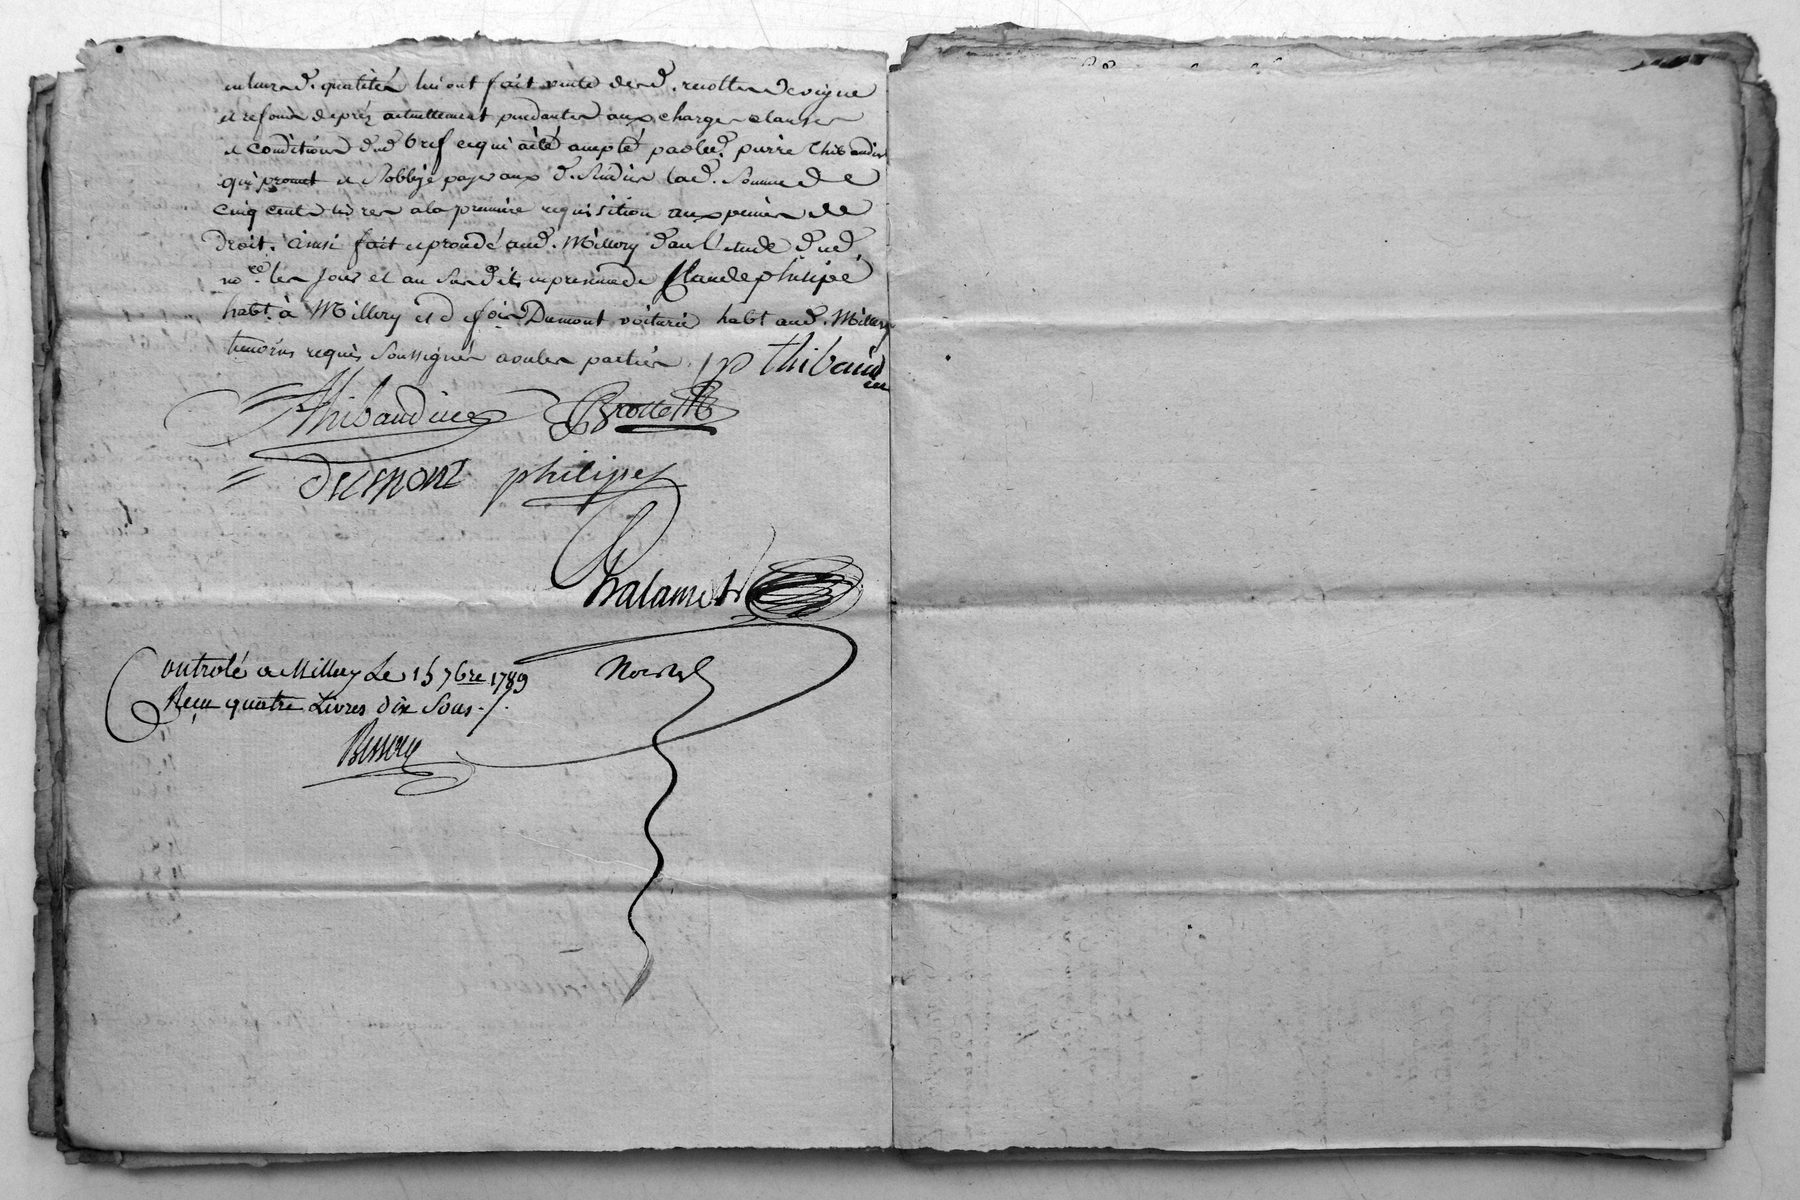 en leurs d. qualités lui ont fait vente desd. recoltes de vigne
et refoin de prés actuellement pendantes aux charges clauses
et conditions dud bref ce qui a été accepté par led. pierre Thibaudier
qui promet et s'obblige payer aux d. Sindics lad. Somme de
cinq cents livres a la premiere requisition aux peines de
Droit. ainsi fait et procédé aud. Millery dans l'etude dud
nore. les jour et an susdits en presence de Claude philipe
habt. à Millery et Dumont voiturier habt aud. Millery
temoins requis soussignés avec les parties. p thibaudier
Thibaudier Brottet
dumont philipe
Chalamet
Controlé a Millery Le 15 7bre 1789
Reçu quatre Livres dix Sous ./.
Nore Rl